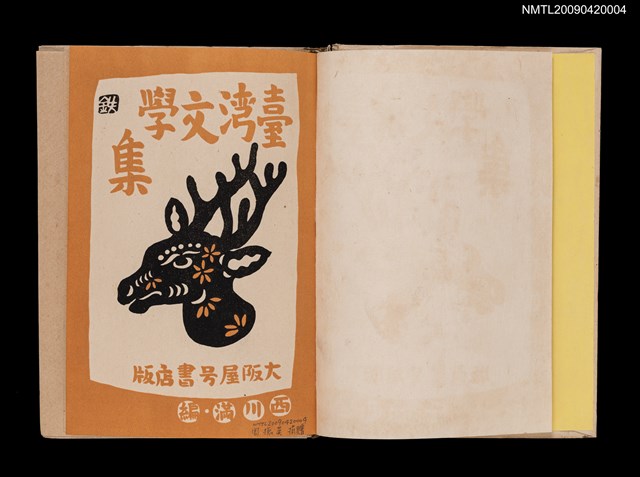 NMTL20090420004
鉄
臺湾文學
集
大阪屋号書店版
西川満・編
NMTL20090420004